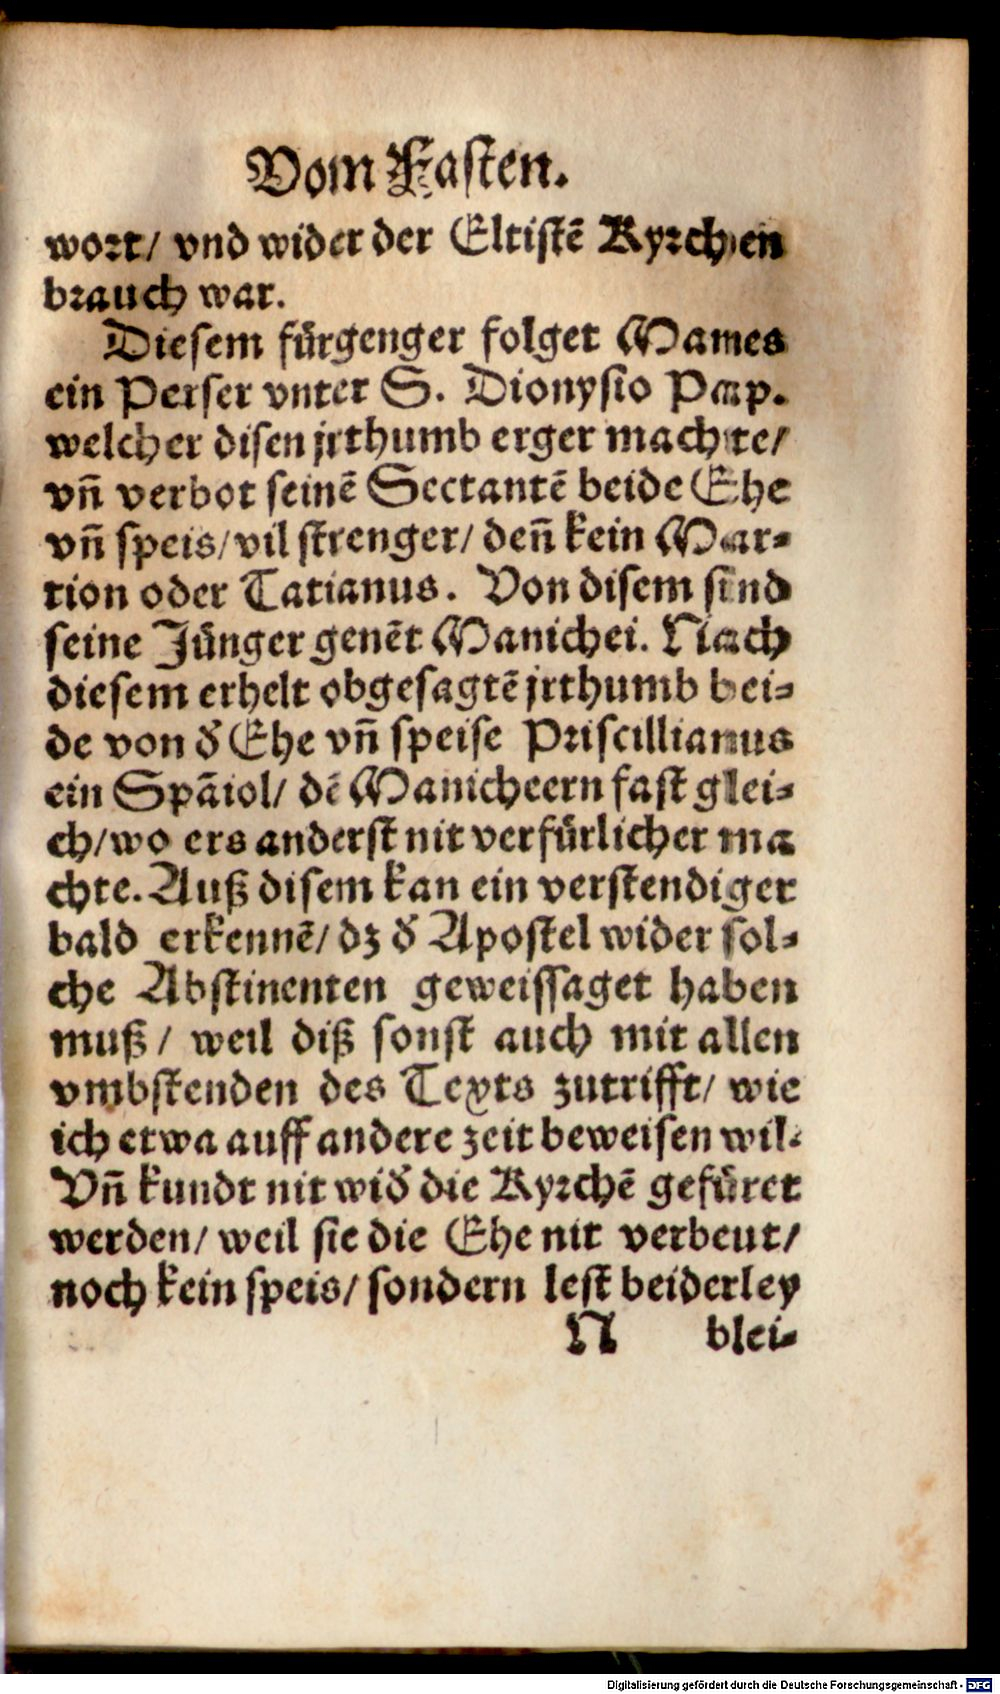 Vom Fasten.
wort/ vnd wider der Eltistē Kyrchen
brauch war.
Diesem fürgenger folget Manes
ein Perser vnter S. Dionysio Pap.
welcher disen jrthumb erger machte/
vñ verbot seinē Sectantē beide Ehe
vñ speis/ vil strenger/ deñ kein Mar-
tion oder Tatianus. Von disem sind
seine Jünger genēt Manichei. Nach
diesem erhelt obgesagtē jrthumb bei-
de von ď Ehe vñ speise Priscillianus
ein Spāiol/ dē Manicheern fast glei-
ch/ wo ers anderst nit verfürlicher ma
chte. Auß disem kan ein verstendiger
bald erkennē/ dz ď Apostel wider sol-
che Abstinenten geweissaget haben
muß/ weil diß sonst auch mit allen
vmbstenden des Texts zutrifft/ wie
ich etwa auff andere zeit beweisen wil.
Vñ kundt nit wiď die Kyrchē gefüret
werden/ weil sie die Ehe nit verbeut/
noch kein speis/ sondern lest beiderley
N blei-
Digitalisierung gefördert durch die Deutsche Forschungsgemeinschaft - DFG